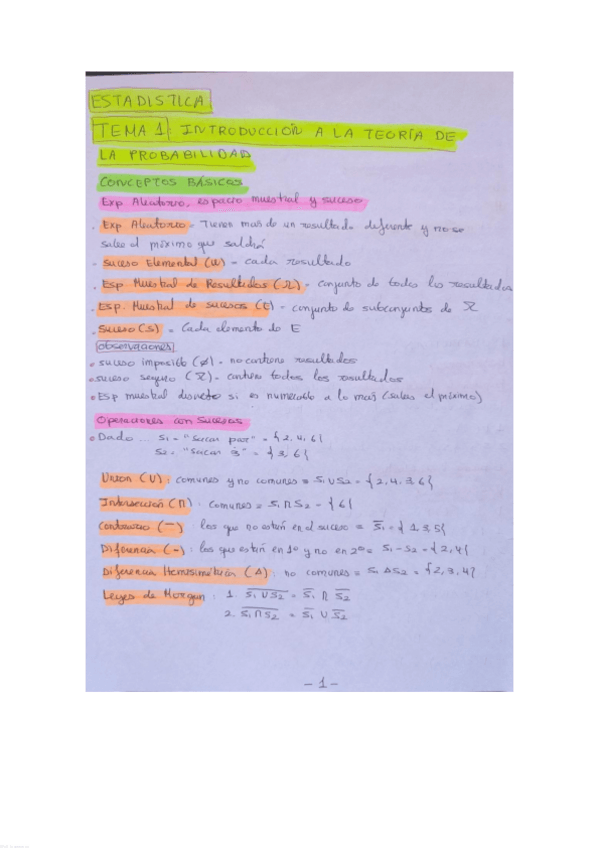 ESTADISTICA
TEMA 1: INTRODUCCIÓN A LA TEORÍA DE
LA PROBABILIDAD
CONCEPTOS BÁSICOS
Exp Aleatorio, espacio muestral y suceso
. Exp Aleatorio = Tienen mas de un resultado diferente y no se
sabe el próximo que saldrá
. Suceso Elemental (ω) = cada resultado
. Esp. Muestral de Resultados (Ω) = conjunto de todos los resultados
. Esp. Muestral de sucesos (E) = conjunto de subconjuntos de Ω
. Suceso (S) = Cada elemento de E
observaciones
• suceso imposible (∅) = no contiene resultados
• suceso seguro (Ω) = contiene todos los resultados
• Esp muestral discreto si es numerable a lo mas (sabes el próximo)
Operaciones con Sucesos
• Dado ... S1 = "Sacar par" = {2, 4, 6}
S2 = "Sacar 3" = {3, 6}
Union (U): comunes y no comunes = S1 U S2 = {2, 4, 3, 6}
Intersección (∩): comunes = S1 ∩ S2 = {6}
Contrario (—): los que no están en el suceso = S̅1 = {1, 3, 5}
Diferencia (-): los que están en 1º y no en 2º = S1 - S2 = {2, 4}
Diferencia (Δ): no comunes = S1 Δ S2 = {2, 3, 4}
Leyes de Morgan: 1. \overline{S1 U S2} = \overline{S1} ∩ \overline{S2}
2. \overline{S1 ∩ S2} = \overline{S1} U \overline{S2}
- 1 -